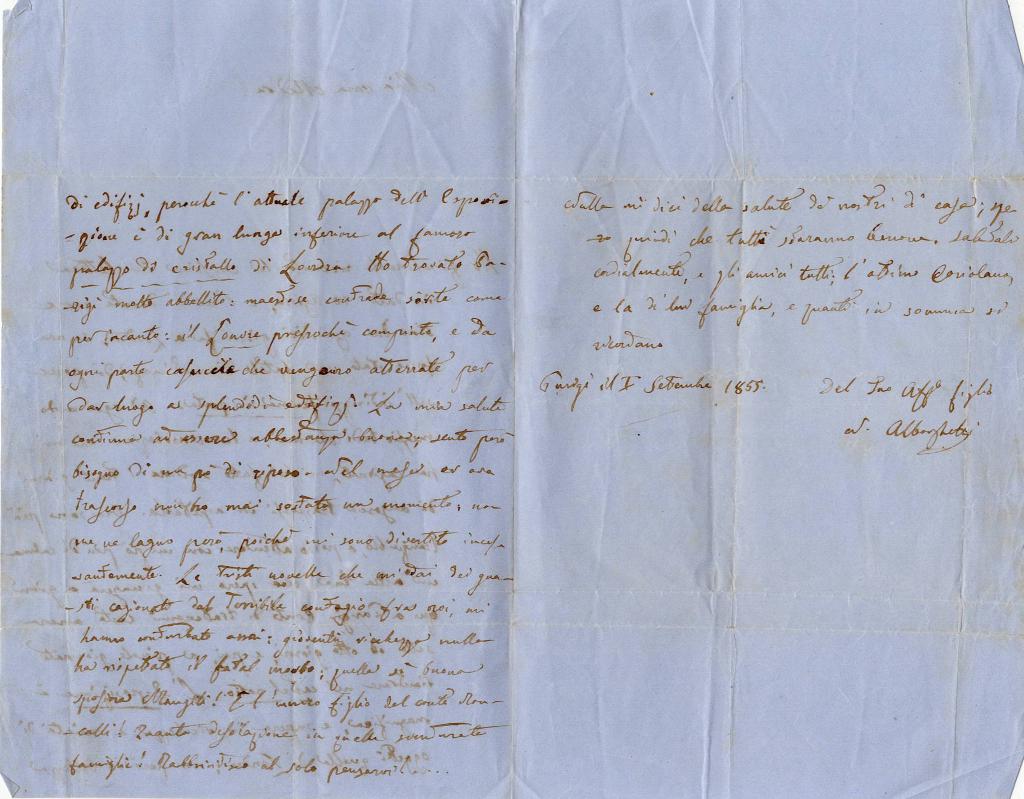 di edifizj, perocchè l'attuale palazzo dell'Esposi-
-zione è di gran lunga inferiore al famoso
palazzo di cristallo di Londra. Ho trovato Pa-
-rigi molto abbellito: maestose contrade sortite come
per incanto: il Louvre pressochè compiuto, e da
ogni parte casuccie che vengono atterrate per
dar luogo a splendidi edifizj. La mia salute
continua ad essere abbastanza buona; sento però
bisogno di un pò di riposo. Nel mese or ora
trascorso non ho mai sostato un momento; non
me ne lagno però, poichè mi sono divertito inces-
santemente. Le tristi novelle che mi dai dei gua-
-sti cagionati dal terribile contagio fra noi, mi
hanno conturbato assai: gioventù, ricchezza nulla
ha rispettato il fatal morbo; quella sì buona
sposina! E l'unico figlio del conte Ron-
-calli! Quanta desolazione in quelle sventurate
famiglie! Rabbrividisco al solo pensarvi!....
Nulla mi dici della salute dei nostri di casa; spe-
ro quindi che tutti staranno benone. Salutali
cordialmente, e gli amici tutti; l'ottimo Coriolano,
e la di lui famiglia, e quanti in somma si
ricordano
Parigi il I Settembre 1855.
Del tuo Affo figlio
A. Alborghetti